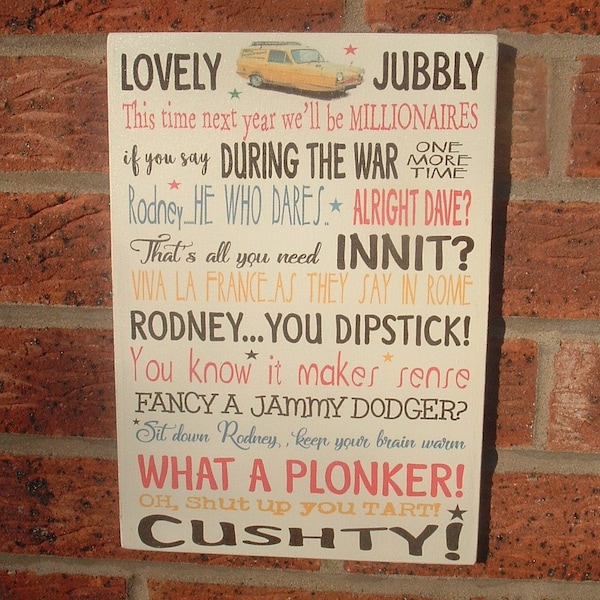 LOVELY JUBBLY
This time next year we'll be MILLIONAIRES
if you say DURING THE WAR ONE MORE TIME
Rodney...HE WHO DARES.. ALRIGHT DAVE?
That's all you need INNIT?
VIVA LA FRANCE...AS THEY SAY IN ROME
RODNEY...YOU DIPSTICK!
You know it makes sense
FANCY A JAMMY DODGER?
Sit down Rodney, , keep your brain warm
WHAT A PLONKER!
OH, Shut up you TART!
CUSHTY!